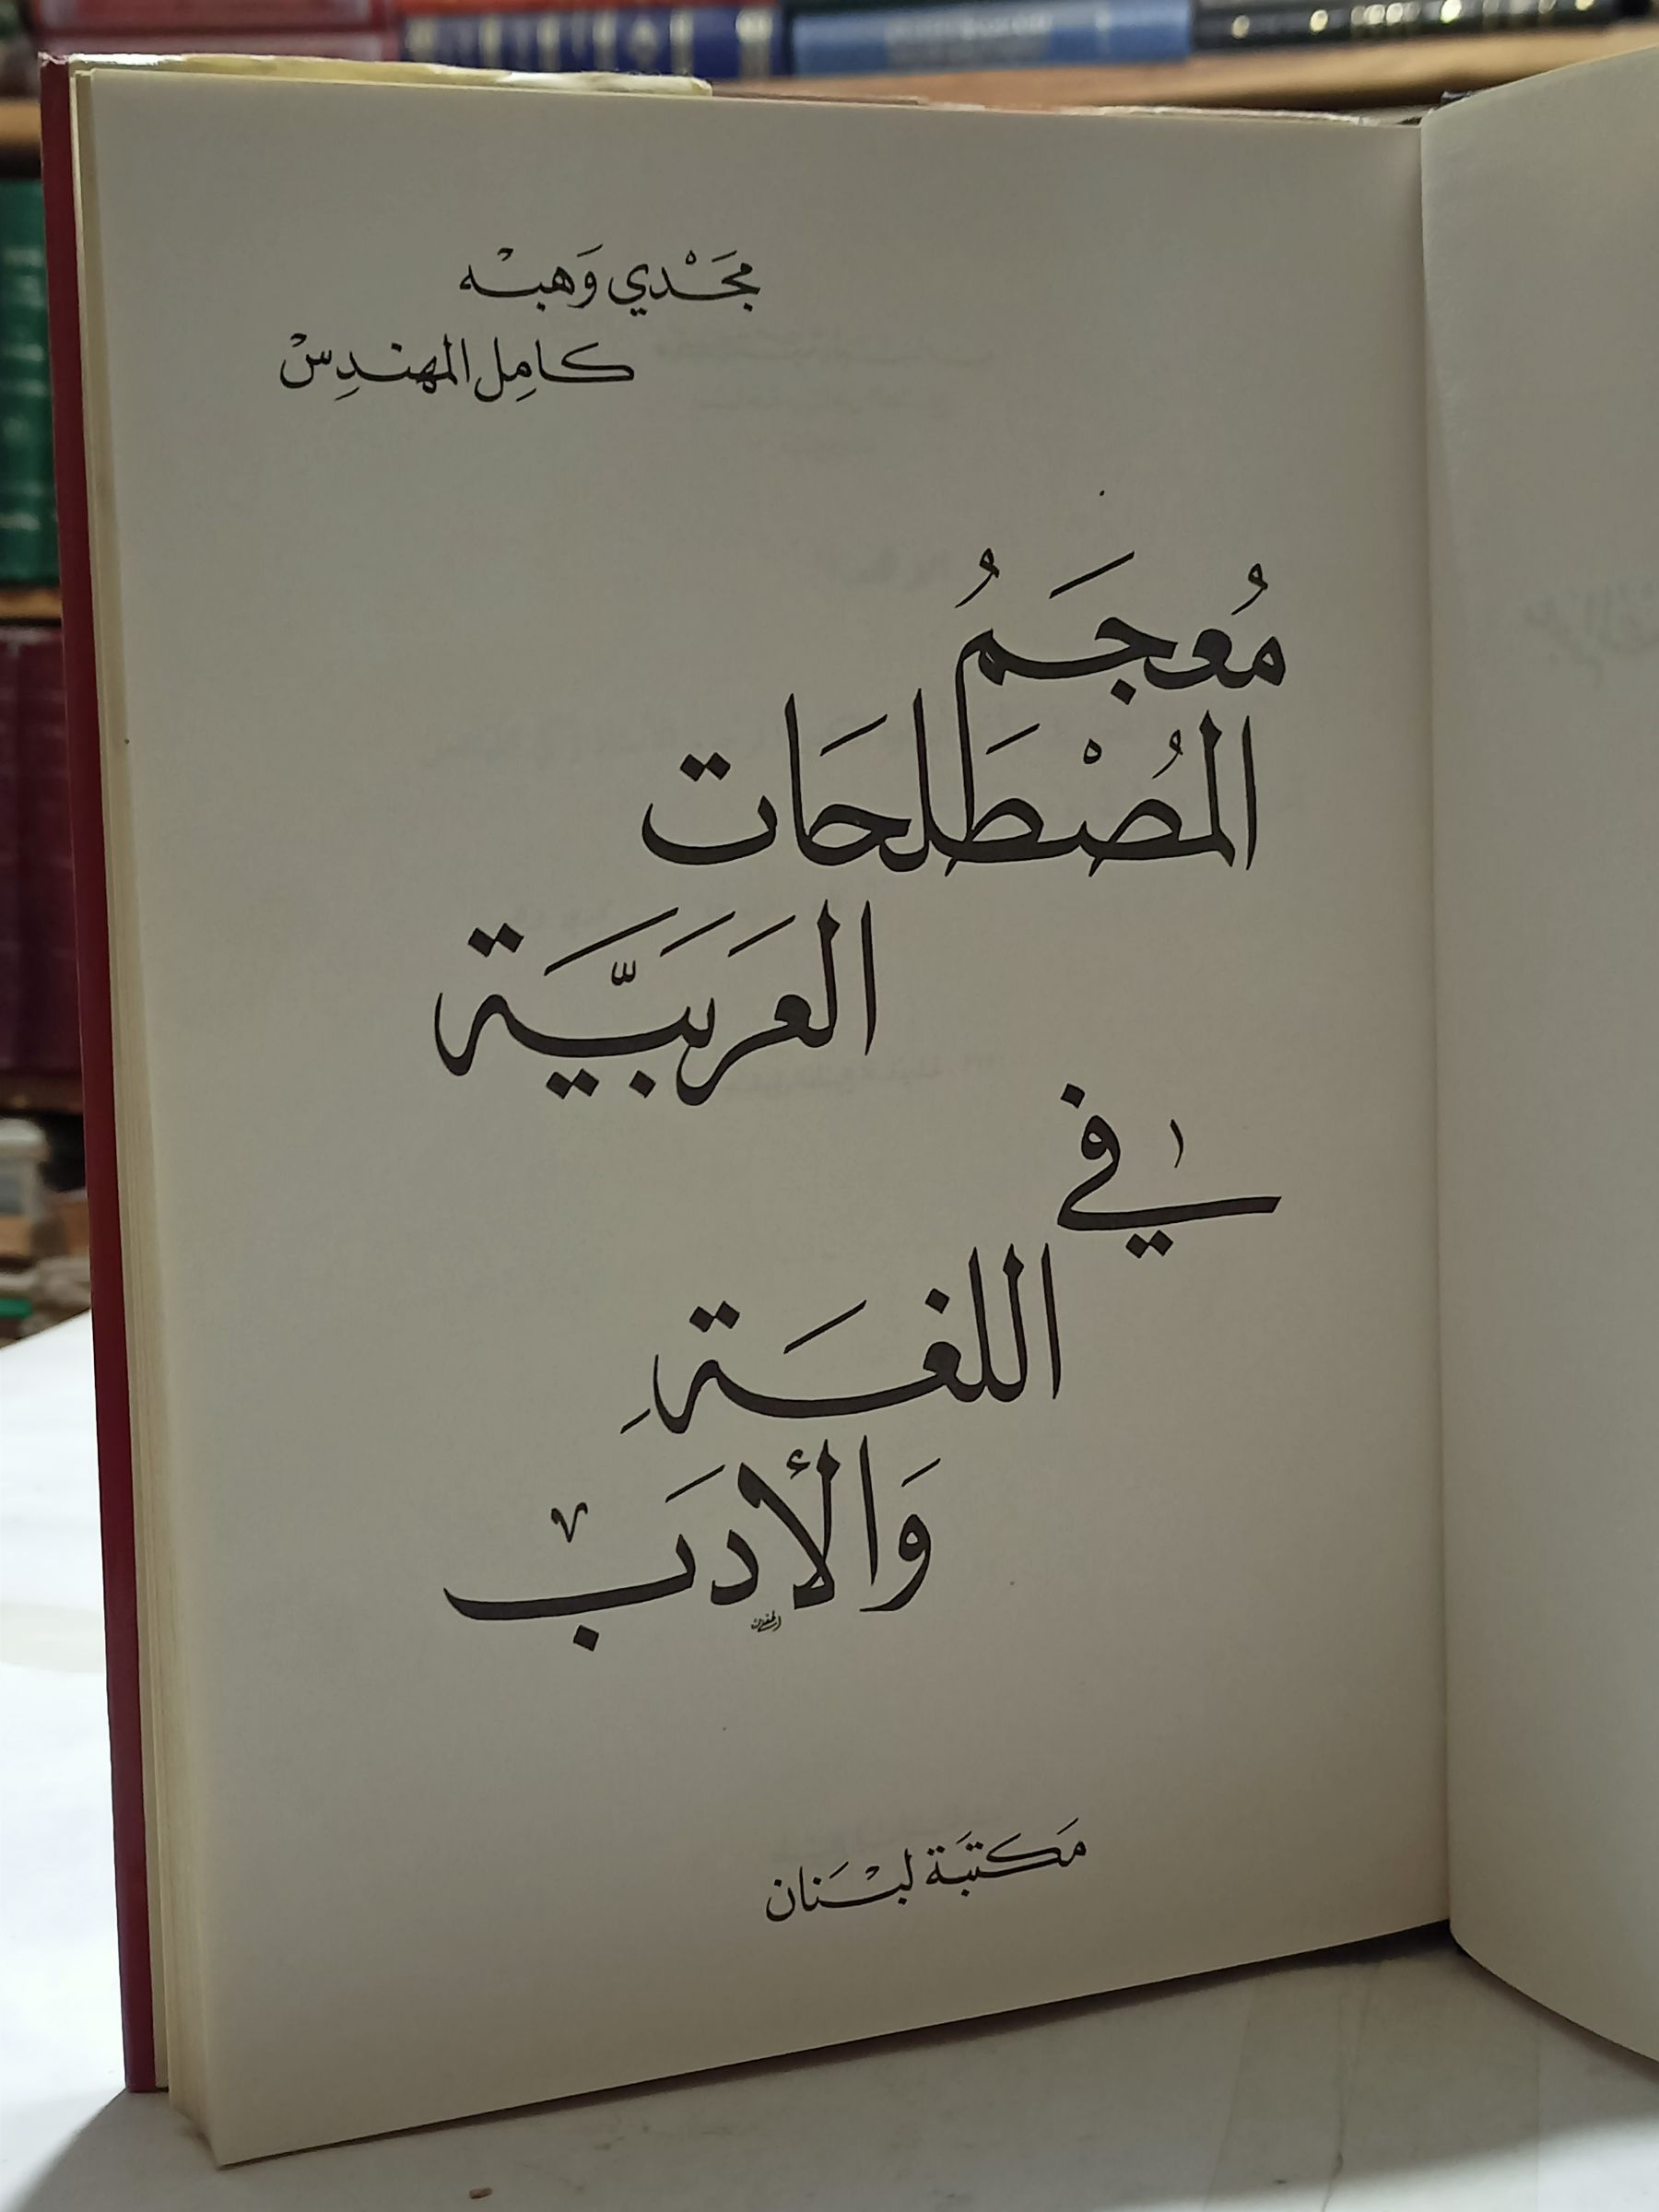 مَجَدْي وَهبْه
كامِل المهندِسْ
مُعجَمُ
المُصْطَلحَات
العَرَبَيَّة
في
اللغَةِ
وَالأدَب
مَكتَبَة لبْنَان